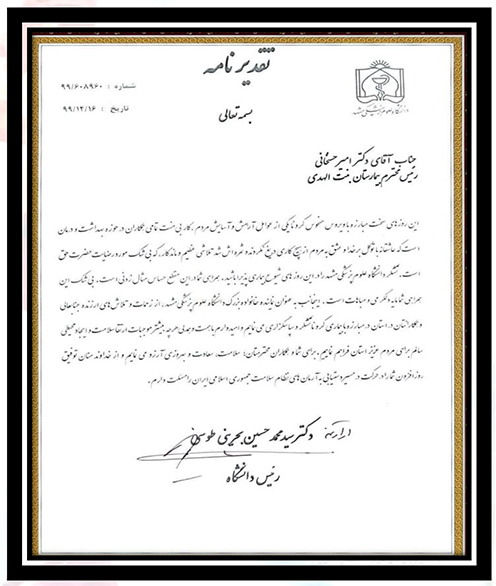 تقدیرنامه
شماره : ۹۹/۶۰۸۹۶۰
تاریخ : ۹۹/۱۲/۱۶
دانشگاه علوم پزشکی مشهد
بسمه تعالی
جناب آقای دکتر امیر حسنخانی
رئیس محترم بیمارستان بنت الهدی
این روزهای سخت مبارزه با ویروس منحوس کرونا یکی از عوامل آرامش و آسایش مردم، کار بی منت تمامی همکاران در حوزه بهداشت و درمان
است که عاشقانه با توکل بر خدا و عشق به مردم از هیچ کاری دریغ نکرده و ثمره اش شد تلاشی عظیم و ماندگار که بی شک مورد رضایت حضرت حق
است. تشکر دانشگاه علوم پزشکی مشهد را در این روزهای شیوع بیماری پذیرا باشید. همراهی شما در این مقطع حساس مثال زدنی است. بی شک این
همراهی شما مایه دلگرمی و مباهات است. اینجانب به عنوان نماینده خانواده بزرگ دانشگاه علوم پزشکی مشهد، از زحمات و تلاش های ارزنده جنابعالی
و همکارانتان در استان در مبارزه با بیماری کرونا تشکر و سپاسگزاری می نمایم و امیدوارم با همت و همدلی هرچه بیشتر موجبات ارتقا سلامت و ایجاد محیطی
سالم برای مردم عزیز استان فراهم نماییم. برای شما و همکاران محترمتان؛ سلامت، سعادت و بهروزی آرزو می نمایم و از خداوند منان توفیق
روزافزون شما را در حرکت در مسیر دستیابی به آرمان های نظام سلامت جمهوری اسلامی ایران را مسئلت دارم.
دکتر سید محمد حسین بحرینی طوسی
رئیس دانشگاه